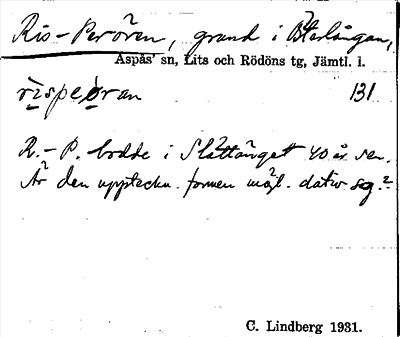 Ris-Perören, grund i Österlången,
Aspås' sn, Lits och Rödöns tg, Jämtl. l.
rìspeǿran 131
R.-P. bodde i Slåttänget 40 år sen.
Är den uppteckn. formen möjl. dativ sg.?
C. Lindberg 1931.